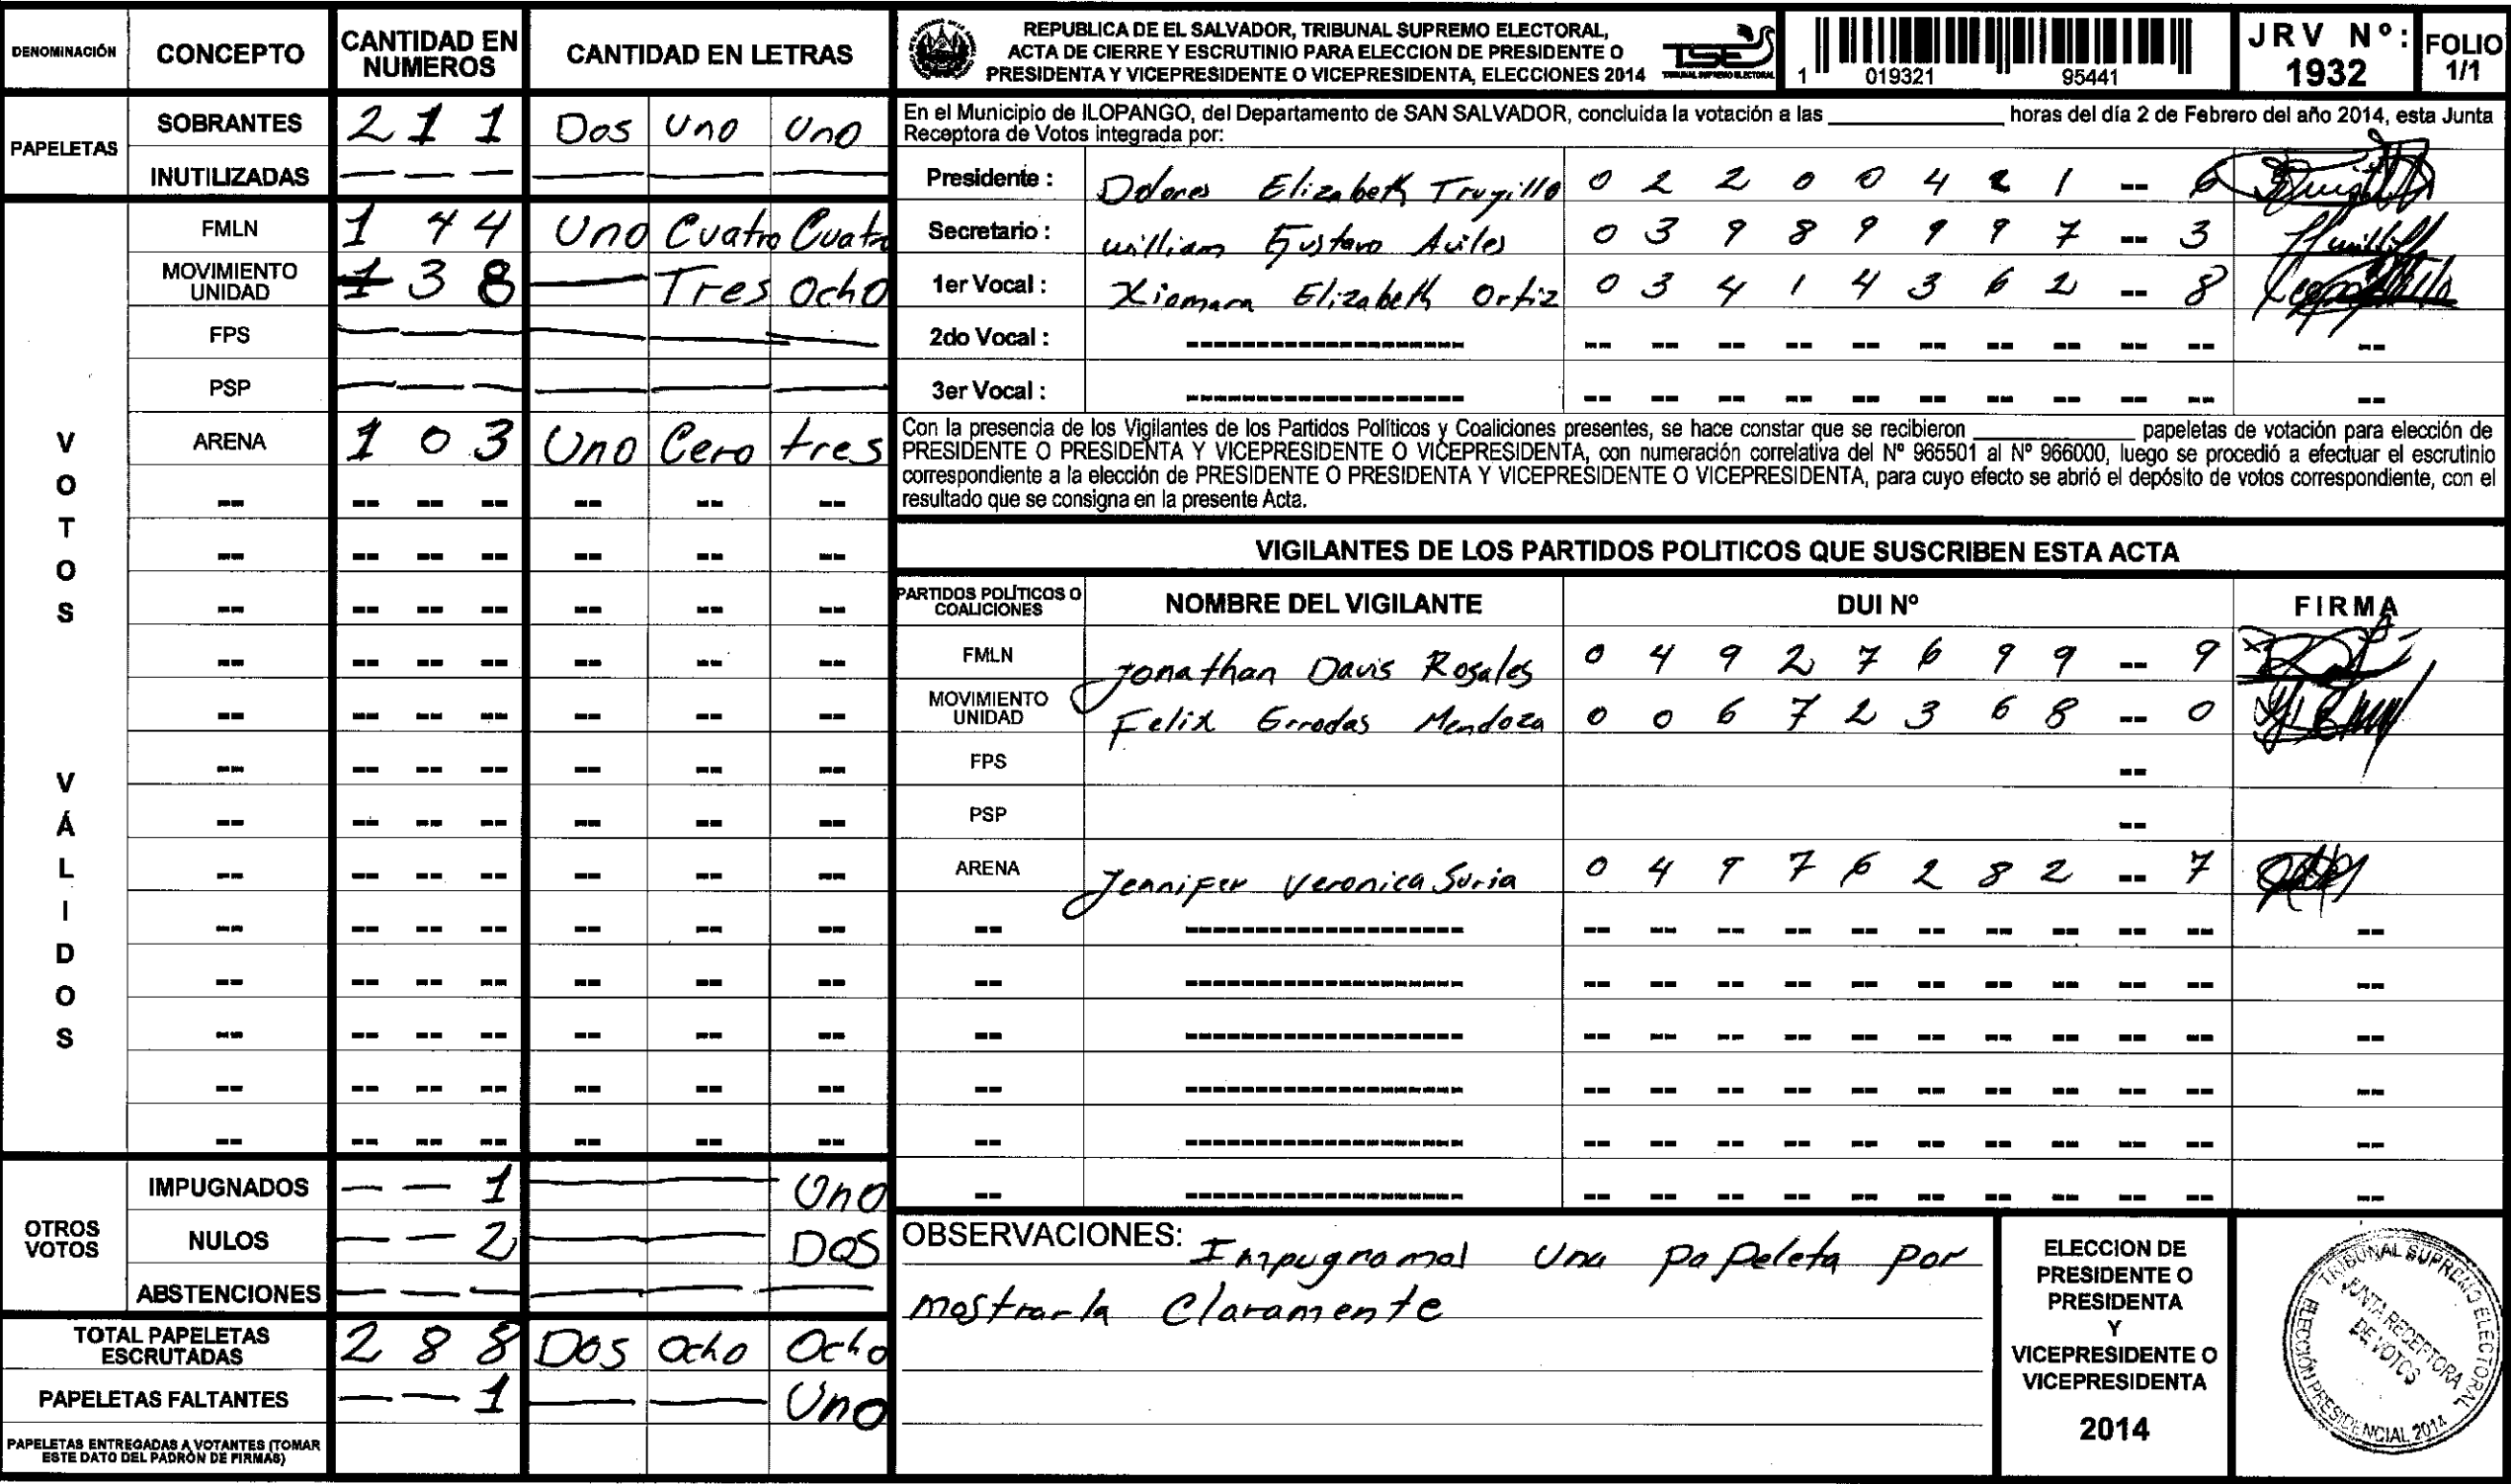 DENOMINACIÓN CONCEPTO CANTIDAD EN NUMEROS CANTIDAD EN LETRAS
PAPELETAS
SOBRANTES 2 1 1 Dos Uno Uno
INUTILIZADAS — — — — — —
VOTOS VÁLIDOS
FMLN 1 4 4 Uno Cuatro Cuatro
MOVIMIENTO UNIDAD 1 3 8 — Tres Ocho
FPS — — — — — —
PSP — — — — — —
ARENA 1 0 3 Uno Cero tres
OTROS VOTOS
IMPUGNADOS — — 1 — — Uno
NULOS — — 2 — — Dos
ABSTENCIONES — — — — — —
TOTAL PAPELETAS ESCRUTADAS 2 8 8 Dos Ocho Ocho
PAPELETAS FALTANTES — — 1 — — Uno
PAPELETAS ENTREGADAS A VOTANTES (TOMAR
ESTE DATO DEL PADRÓN DE FIRMAS)
REPUBLICA DE EL SALVADOR, TRIBUNAL SUPREMO ELECTORAL,
ACTA DE CIERRE Y ESCRUTINIO PARA ELECCION DE PRESIDENTE O
PRESIDENTA Y VICEPRESIDENTE O VICEPRESIDENTA, ELECCIONES 2014
TSE
TRIBUNAL SUPREMO ELECTORAL
1 019321 95441
JRV Nº: 1932
FOLIO 1/1
En el Municipio de ILOPANGO, del Departamento de SAN SALVADOR, concluida la votación a las ____ horas del día 2 de Febrero del año 2014, esta Junta
Receptora de Votos integrada por:
Presidente : Dolores Elizabeth Trugillo 0 2 2 0 0 4 2 1 -- 6
Secretario : William Gustavo Aviles 0 3 9 8 9 9 9 7 -- 3
1er Vocal : Xiomara Elizabeth Ortiz 0 3 4 1 4 3 6 2 -- 8
2do Vocal :
3er Vocal :
Con la presencia de los Vigilantes de los Partidos Políticos y Coaliciones presentes, se hace constar que se recibieron ____ papeletas de votación para elección de
PRESIDENTE O PRESIDENTA Y VICEPRESIDENTE O VICEPRESIDENTA, con numeración correlativa del Nº 965501 al Nº 966000, luego se procedió a efectuar el escrutinio
correspondiente a la elección de PRESIDENTE O PRESIDENTA Y VICEPRESIDENTE O VICEPRESIDENTA, para cuyo efecto se abrió el depósito de votos correspondiente, con el
resultado que se consigna en la presente Acta.
VIGILANTES DE LOS PARTIDOS POLITICOS QUE SUSCRIBEN ESTA ACTA
PARTIDOS POLÍTICOS O COALICIONES NOMBRE DEL VIGILANTE DUI Nº FIRMA
FMLN Jonathan Davis Rosales 0 4 9 2 7 6 9 9 -- 9
MOVIMIENTO UNIDAD Felix Errodas Mendoza 0 0 6 7 2 3 6 8 -- 0
FPS --
PSP --
ARENA Jennifer Veronica Suria 0 4 9 7 6 2 8 2 -- 7
OBSERVACIONES: Impugnamol Una papeleta por
mostrarla Claramente
ELECCION DE
PRESIDENTE O
PRESIDENTA
Y
VICEPRESIDENTE O
VICEPRESIDENTA
2014
TRIBUNAL SUPREMO ELECTORAL
JUNTA RECEPTORA
DE VOTOS
ELECCIÓN PRESIDENCIAL 2014